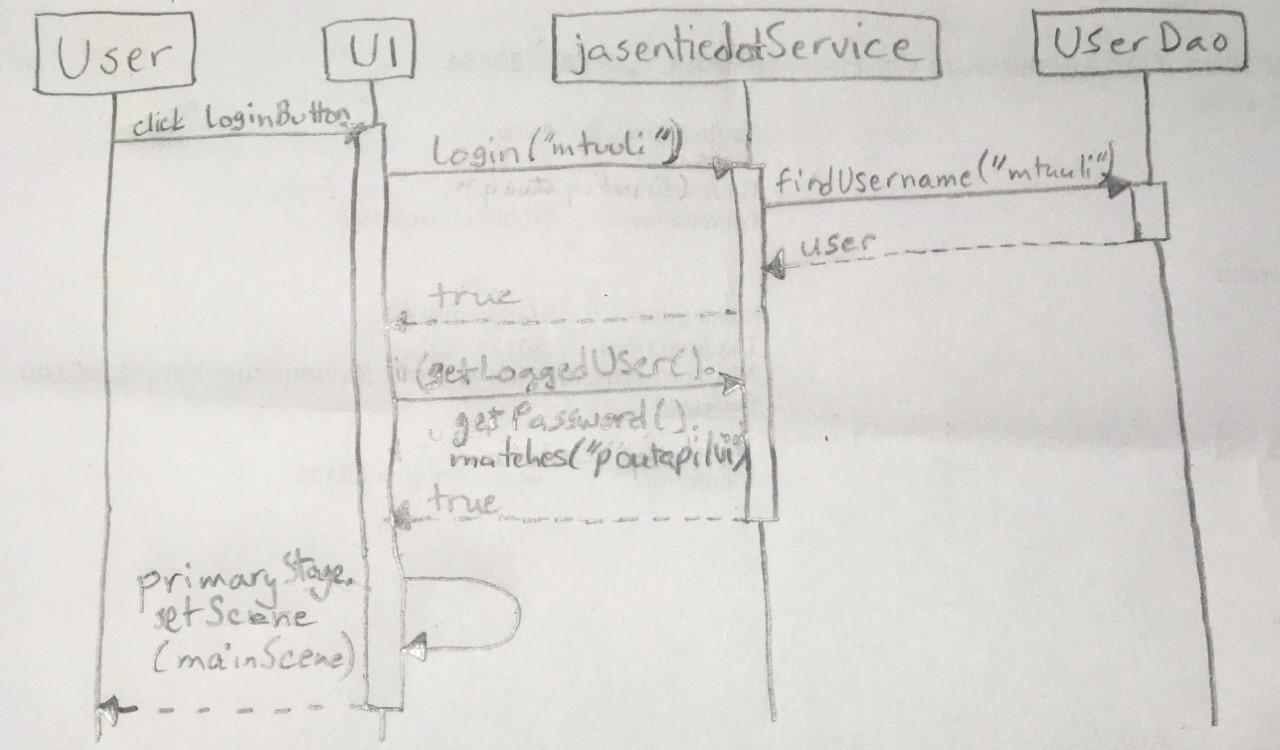 User
UI
jasentiedotService
UserDao
click loginButton
login("mtuuli")
findUsername("mtuuli")
user
true
(getLoggedUser().
getPassword().
matches("poutapilvi")
true
primaryStage.
setScene
(mainScene)